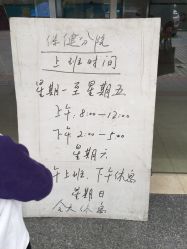 保健分院
上班时间
星期一至星期五
上午:8:00—12:00
下午2:00—5:00
星期六
午上班、下午休息
星期日
全天休息